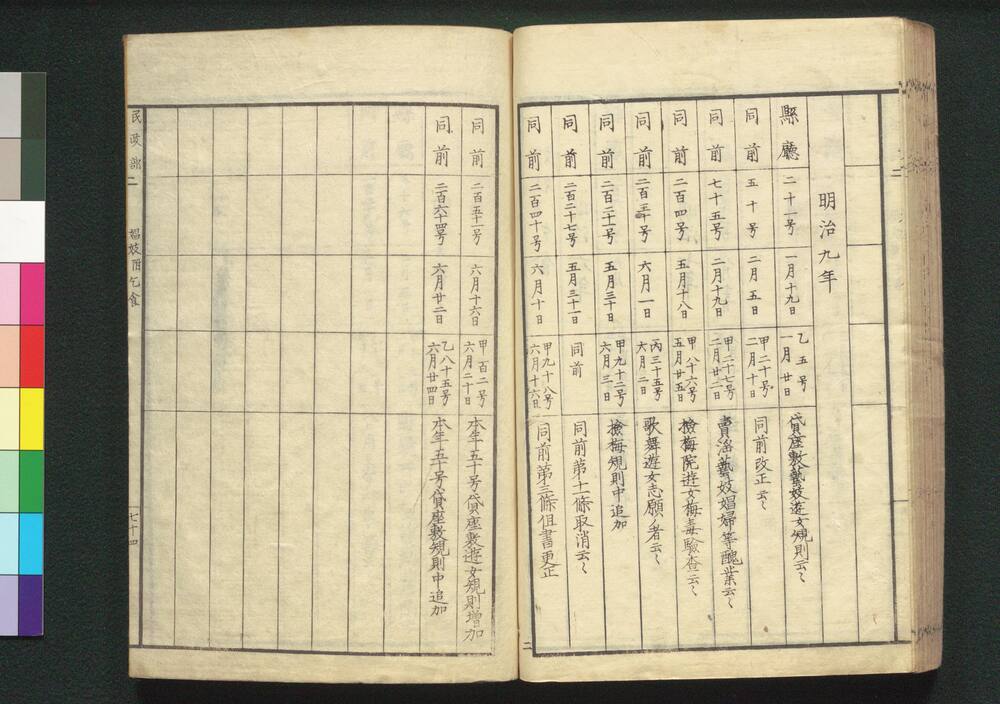 明治九年
縣廳 二十一号 一月十九日 乙五号 一月廿日 貸座敷藝妓遊女規則云〻
同前 五十号 二月五日 甲二十号 二月十日 同前改正云〻
同前 七十五号 二月十九日 甲二十七号 二月廿二日 賣淫藝妓娼婦等醜業云〻
同前 二百四号 五月十八日 甲八十六号 五月廿五日 撿梅院遊女梅毒驗査云〻
同前 二百三十号 六月一日 丙三十五号 六月二日 歌舞遊女志願ノ者云〻
同前 二百二十一号 五月三十日 甲九十二号 六月三日 撿梅規則中追加
同前 二百二十七号 五月三十一日 同前 同前第十一條取消云〻
同前 二百四十号 六月十日 甲九十八号 六月十六日 同前第三條但書更正
二
同前 二百五十一号 六月十六日 甲百二号 六月二十日 本年五十号貸座敷遊女規則増加
同前 二百六十四号 六月廿二日 乙八十五号 六月廿四日 本年五十号貸座敷規則中追加
民政部二 娼妓附乞食 七十四